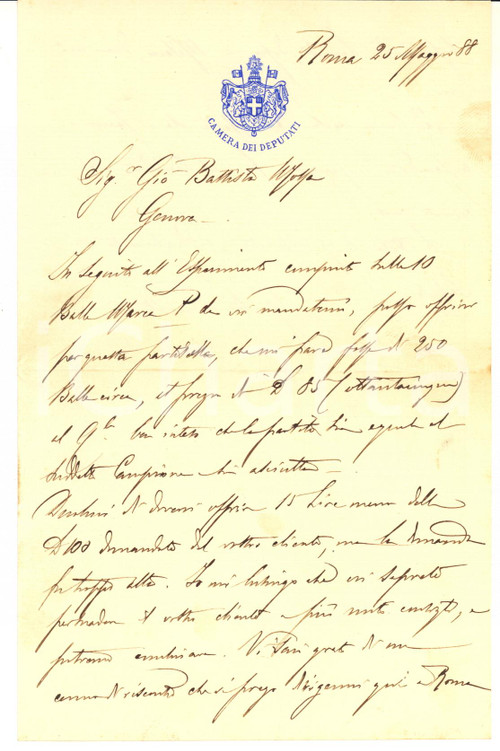 Roma 25 Maggio 88
CAMERA DEI DEPUTATI
Sig.r Gio Battista
Genova
In seguito all'Esperimento compiuto dalle 10
Balle Marca P da voi mandatemi, posso offrire
per questa partitella, che mi pare fosse di 250
Balle circa, il prezzo di L 85 (ottantacinque)
al Q.le Ben inteso che la partita sia eguale al
suddetto Campione
di dovervi offrire 15 Lire meno delle
L 100 domandate dal vostro cliente, ma la domanda
fu troppo alta. Io mi lusingo che voi saprete
persuadere il vostro cliente a più miti consigli, e
potremo combinare. Vi sarò grato di un
cenno di riscontro che vi prego dirigermi qui a Roma